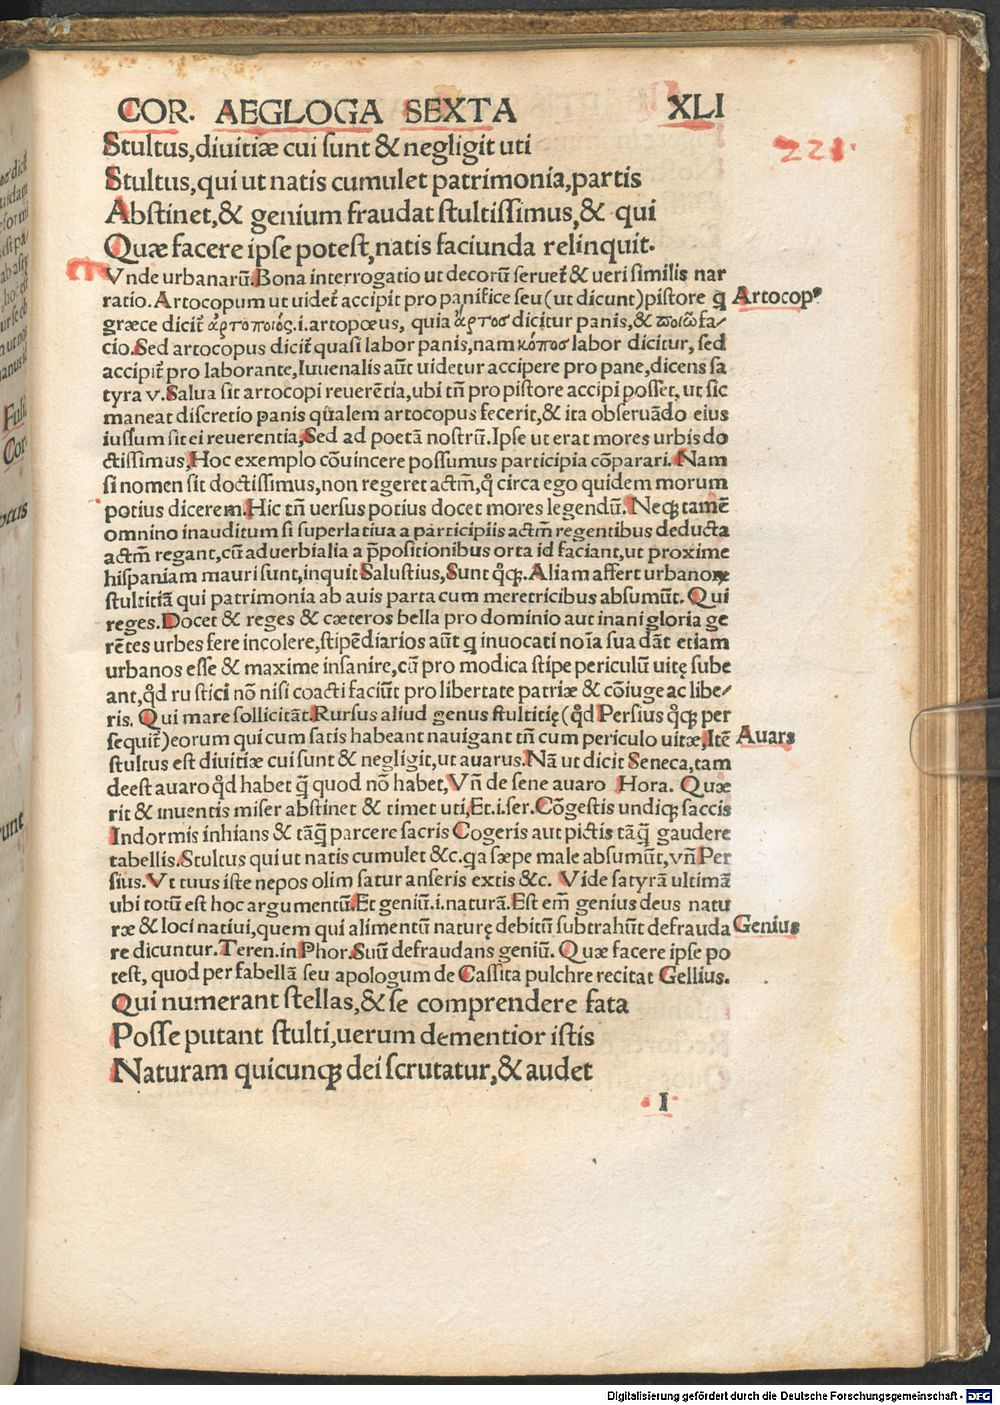 COR. AEGLOGA SEXTA XLI
221.
Stultus,diuitiæ cui sunt & negligit uti
Stultus,qui ut natis cumulet patrimonia,partis
Abstinet,& genium fraudat stultissimus,& qui
Quæ facere ipse potest,natis faciunda relinquit.
Vnde urbanarū.Bona interrogatio ut decorū seruet̄ & ueri similis nar
ratio.Artocopum ut uidet̄ accipit pro panifice seu(ut dicunt)pistore q̄ Artocopꝰ
græce dicit̄ ἀρτοποιός.i.artopœus, quia ἄρτοσ dicitur panis,& ποιῶ fa/
cio.Sed artocopus dicit̄ quasi labor panis,nam κόποσ labor dicitur, sed
accipit̄ pro laborante,Iuuenalis aūt uidetur accipere pro pane,dicens sa
tyra v.Salua sit artocopi reuerētia,ubi tn̄ pro pistore accipi posset, ut sic
maneat discretio panis qualem artocopus fecerit,& ita obseruādo eius
iussum sit ei reuerentia,Sed ad poetā nostrū.Ipse ut erat mores urbis do
ctissimus,Hoc exemplo cōuincere possumus participia cōparari.Nam
si nomen sit doctissimus,non regeret actm̄,q̊ circa ego quidem morum
potius dicerem.Hic tn̄ uersus potius docet mores legendū.Neqꝫ tamē
omnino inauditum si superlatiua a participiis actm̄ regentibus deducta
actm̄ regant,cū aduerbialia a p̄positionibus orta id faciant,ut proxime
hispaniam mauri sunt,inquit Salustius,Sunt q̊qꝫ.Aliam affert urbanoꝝ
stultitiā qui patrimonia ab auis parta cum meretricibus absumūt.Qui
reges.Docet & reges & cæteros bella pro dominio aut inani gloria ge
rētes urbes fere incolere,stipēdiarios aūt q inuocati noīa sua dāt etiam
urbanos esse & maxime insanire,cū pro modica stipe periculū uitę sube
ant,q̊d rustici nō nisi coacti faciūt pro libertate patriæ & cōiuge ac libe/
ris. Qui mare sollicitāt.Rursus aliud genus stultitię(q̊d Persius q̊qꝫ per
sequit̄)eorum qui cum satis habeant nauigant tn̄ cum periculo uitæ,Itē Auarꝰ
stultus est diuitiæ cui sunt & negligit,ut auarus.Nā ut dicit Seneca,tam
deest auaro q̊d habet q̄ quod nō habet,Vn̄ de sene auaro Hora. Quæ
rit & inuentis miser abstinet & timet uti,Et.i.ser.Cōgestis undiqꝫ saccis
Indormis inhians & tāq̄ parcere sacris Cogeris aut pictis tāq̄ gaudere
tabellis.Stultus qui ut natis cumulet &c.qa sæpe male absumūt,vn̄ Per
sius.Vt tuus iste nepos olim satur anseris extis &c. Vide satyrā ultimā
ubi totū est hoc argumentū.Et geniū.i.naturā.Est em̄ genius deus natu
ræ & loci natiui,quem qui alimentū naturę debitū subtrahūt defrauda Genius
re dicuntur.Teren.in Phor.Suū defraudans geniū. Quæ facere ipse po
test, quod per fabellā seu apologum de Cassita pulchre recitat Gellius.
Qui numerant stellas,& se comprendere fata
Posse putant stulti,uerum dementior istis
Naturam quicunqꝫ dei scrutatur,& audet
I
Digitalisierung gefördert durch die Deutsche Forschungsgemeinschaft - DFG